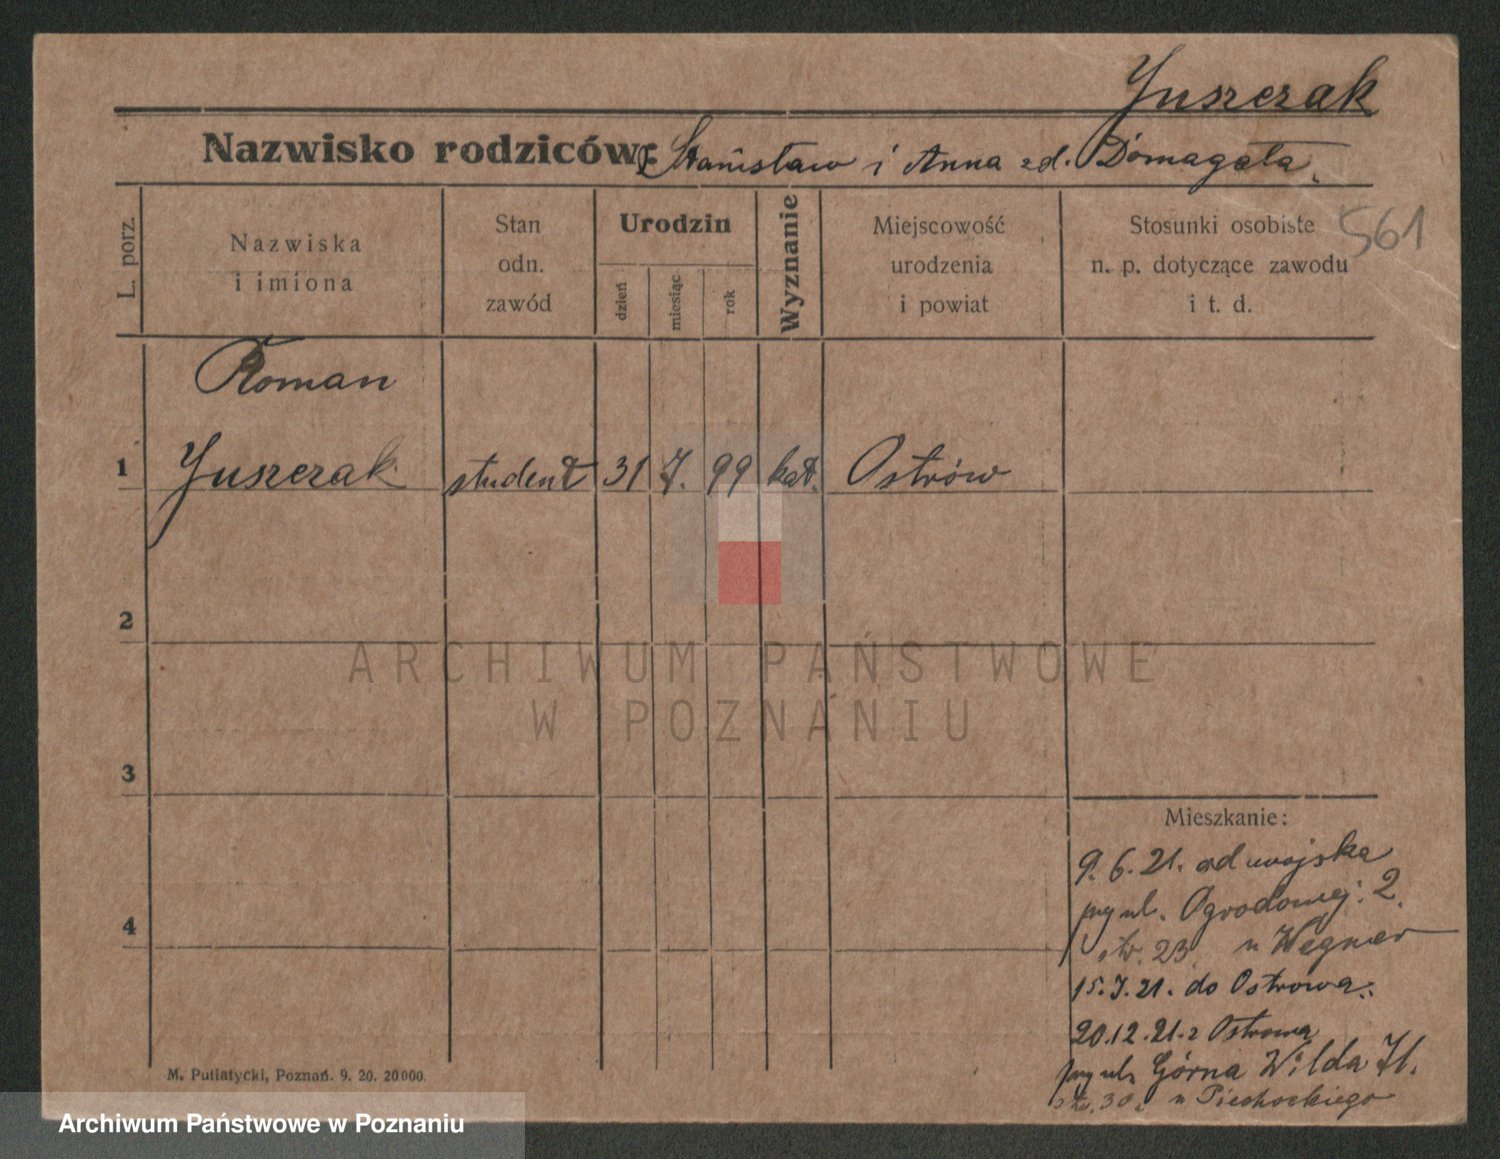 Juszczak
Nazwisko rodziców: Stanisław i Anna zd. Domagała
561
L. porz.
Nazwiska
i imiona
Stan
odn.
zawód
Urodzin
dzień
miesiąc
rok
Wyznanie
Miejscowość
urodzenia
i powiat
Stosunki osobiste
n. p. dotyczące zawodu
i t. d.
Roman
1 Juszczak student 31 7. 99 kat. Ostrów
2
3
4
Mieszkanie:
9. 6. 21. od wojska
przy ul. Ogrodowej: 2.
st. 23. u Wegner
15.7.21. do Ostrowa.
20.12.21. z Ostrowa
przy ul. Górna Wilda 71.
st. 30. u Piechockiego
M. Putiatycki, Poznań. 9. 20. 20000.
ARCHIWUM PAŃSTWOWE
W POZNANIU
Archiwum Państwowe w Poznaniu